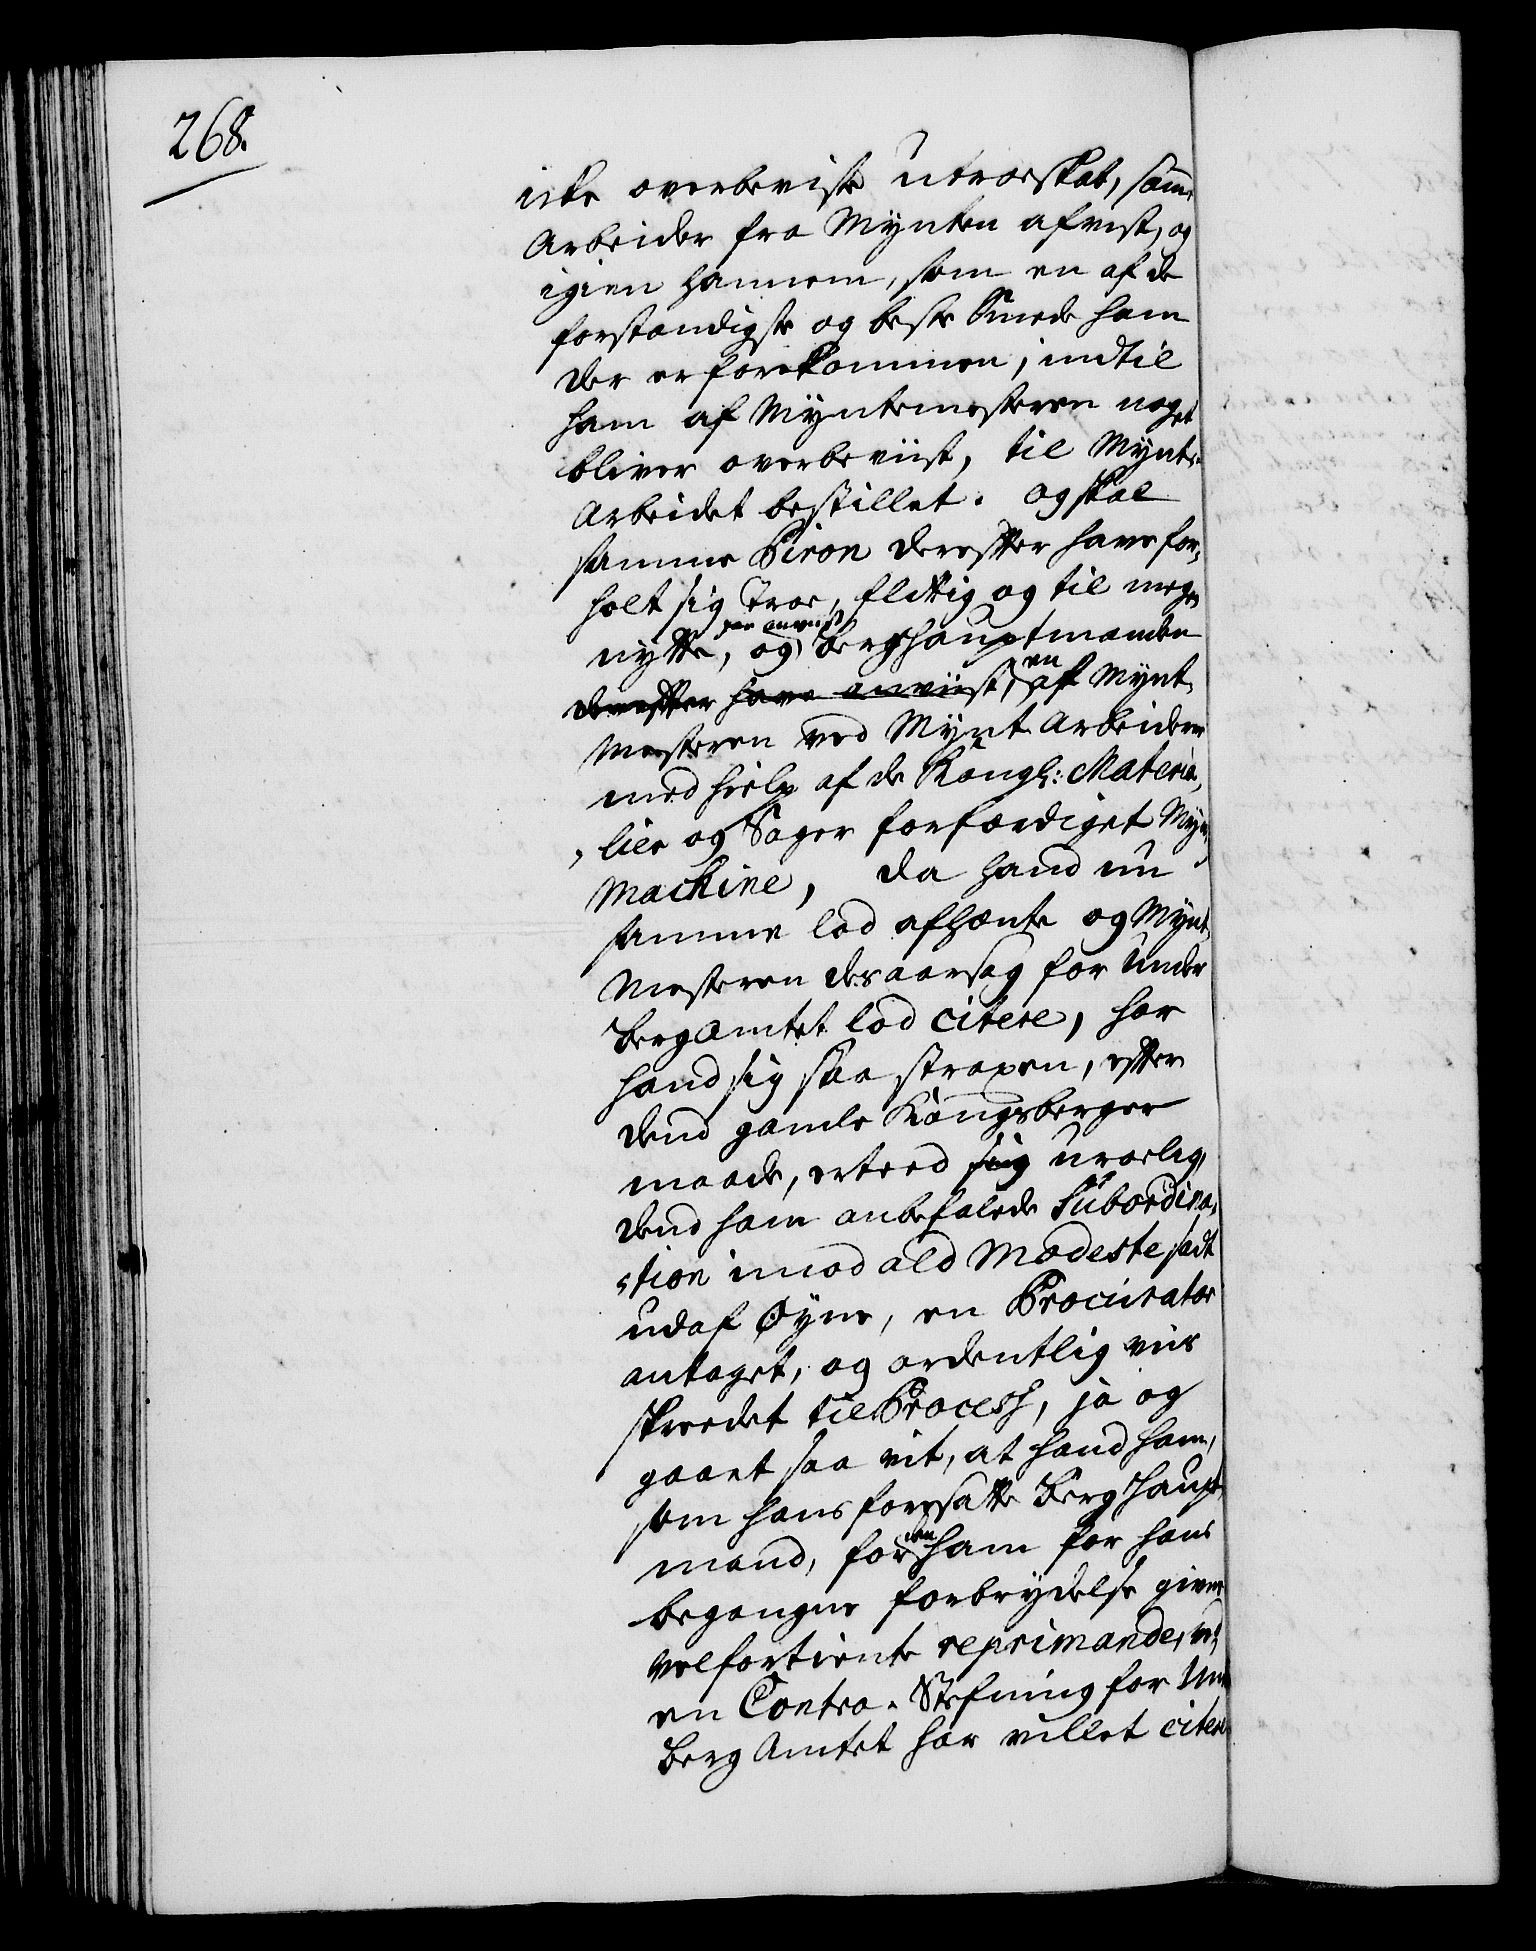 268.
icke overbeviste utroeskab, samme
Arbeider fra Mynten afvist, og
igien hannem, som en af de
forstandigste og beste Smede ham
der er forekommen, indtil
ham af Myntemesteren noget
bliver overbeviist, til Mynte-
Arbeidet bestillet. og skal
samme Piron derefter have for-
holt sig troe, flittig og til megen
nytte, og har anviist Berghauptmanden
derefter have anviist, en af Mynt-
Mesteren ved Mynt Arbeiderne
med hielp af de Kongl: Materia-
lier og Sager forfærdiget Mynt-
Machine, da hand nu
samme lod afhænte og Mynt-
Mesteren desaarsag for Under
bergamtet lod citere, har
hand sig saa straxen, efter
dend gamle Kongsberger
maade, erteed sig uroelig,
dend ham anbefalede Subordina-
tion imod ald Modestie sadt
udaf Øyne, en Procurator
antaget, og ordentlig viis
skreedet til Process, ja og
gaaet saa vit, at hand ham,
som hans foresatte Berg Haupt-
mand, for den ham for hans
begangne forbrydelse given
velfortiente reprimande, ved
en Contra-Stefning for Under
Berg Amtet har villet citere